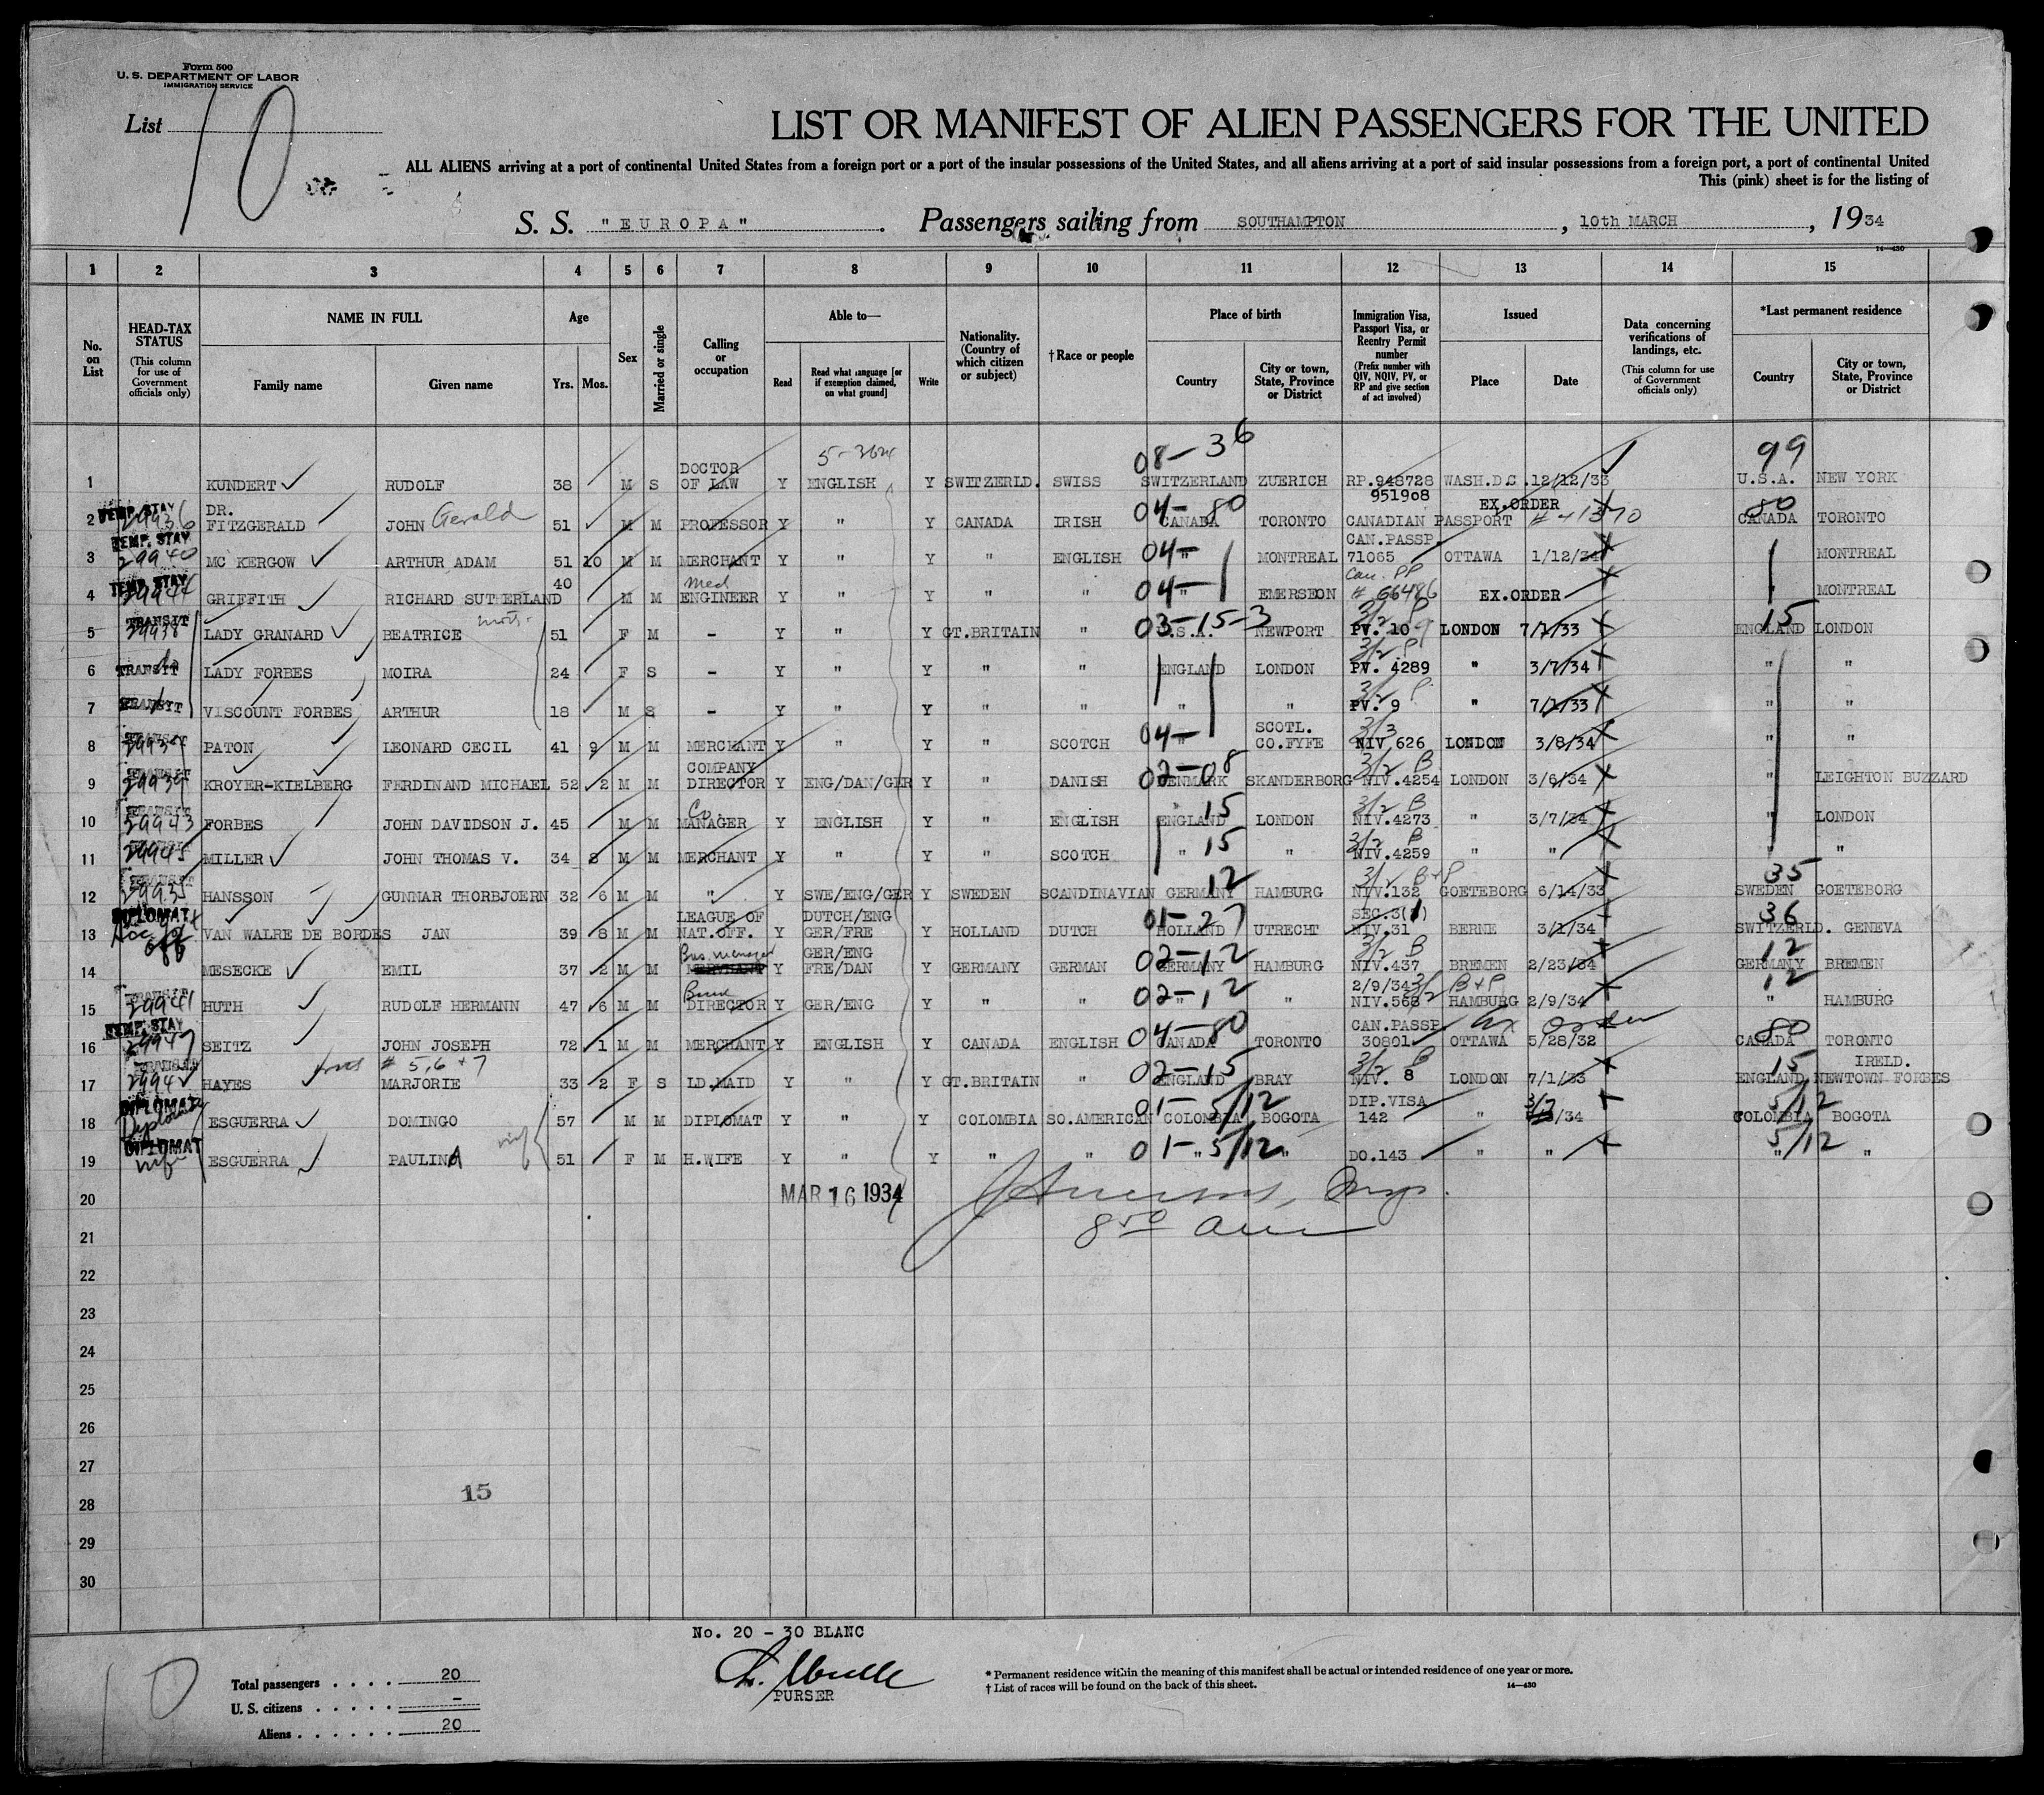 Form 500
U. S. DEPARTMENT OF LABOR
IMMIGRATION SERVICE
List 10
LIST OR MANIFEST OF ALIEN PASSENGERS FOR THE UNITED
ALL ALIENS arriving at a port of continental United States from a foreign port or a port of the insular possessions of the United States, and all aliens arriving at a port of said insular possessions from a foreign port, a port of continental United
This (pink) sheet is for the listing of
S. S. "EUROPA" . Passengers sailing from SOUTHAMPTON , 10th MARCH , 1934
14—430
1 2 3 4 5 6 7 8 9 10 11 12 13 14 15
No. on List
HEAD-TAX STATUS (This column for use of Government officials only)
NAME IN FULL Family name Given name
Age Yrs. Mos.
Sex
Married or single
Calling or occupation
Able to— Read Read what language [or if exemption claimed, on what ground] Write
Nationality. (Country of which citizen or subject)
† Race or people
Place of birth Country City or town, State, Province or District
Immigration Visa, Passport Visa, or Reentry Permit number (Prefix number with QIV, NQIV, PV, or RP and give section of act involved)
Issued Place Date
Data concerning verifications of landings, etc. (This column for use of Government officials only)
*Last permanent residence Country City or town, State, Province or District
5-3624 08-36 99
1 KUNDERT RUDOLF 38 M S DOCTOR OF LAW Y ENGLISH Y SWITZERLD. SWISS SWITZERLAND ZUERICH RP.948728 951908 WASH.D.C. 12/12/33 U.S.A. NEW YORK
2 TEMP. STAY 29936 DR. FITZGERALD JOHN Gerald 51 M M PROFESSOR Y " Y CANADA IRISH 04-80 CANADA TORONTO CANADIAN PASSPORT EX.ORDER 80 CANADA TORONTO
3 TEMP. STAY 29940 MC KERGOW ARTHUR ADAM 51 10 M M MERCHANT Y " Y " ENGLISH 04- " MONTREAL CAN.PASSP. 71065 OTTAWA 1/12/34 MONTREAL
4 TEMP. STAY 29944 GRIFFITH RICHARD SUTHERLAND 40 M M Med ENGINEER Y " Y " " 04- " EMERSEON Can. PP # 66486 EX.ORDER MONTREAL
5 TRANSIT 29938 LADY GRANARD BEATRICE 51 F M - Y " Y GT.BRITAIN " 03-15-3 U.S.A. NEWPORT 3/2 P PV. 109 LONDON 7/1/33 15 ENGLAND LONDON
6 TRANSIT LADY FORBES MOIRA 24 F S - Y " Y " " ENGLAND LONDON 3/2 P PV. 4289 " 3/7/34 " "
7 TRANSIT VISCOUNT FORBES ARTHUR 18 M S - Y " Y " " " " 3/2 P. PV. 9 " 7/1/33 " "
8 TRANSIT 29937 PATON LEONARD CECIL 41 9 M M MERCHANT Y " Y " SCOTCH 04- " SCOTL. CO.FYFE 3/3 NIV 626 LONDON 3/8/34 " "
9 TRANSIT 29939 KROYER-KIELBERG FERDINAND MICHAEL 52 2 M M COMPANY DIRECTOR Y ENG/DAN/GER Y " DANISH 02-08 DENMARK SKANDERBORG 3/2 B NIV.4254 LONDON 3/6/34 " LEIGHTON BUZZARD
10 TRANSIT 29943 FORBES JOHN DAVIDSON J. 45 M M Co. MANAGER Y ENGLISH Y " ENGLISH 15 ENGLAND LONDON 3/2 B NIV.4273 " 3/7/34 " LONDON
11 29945 MILLER JOHN THOMAS V. 34 8 M M MERCHANT Y " Y " SCOTCH " 15 " 3/2 B NIV.4259 " " " "
12 TRANSIT 29935 HANSSON GUNNAR THORBJOERN 32 6 M M " Y SWE/ENG/GER Y SWEDEN SCANDINAVIAN 12 GERMANY HAMBURG 3/2 B+P NIV.132 GOETEBORG 6/14/33 35 SWEDEN GOETEBORG
13 DIPLOMAT VAN WALRE DE BORDES JAN 39 8 M M LEAGUE OF NAT.OFF. Y DUTCH/ENG GER/FRE Y HOLLAND DUTCH 01-27 HOLLAND UTRECHT SEC.3(1) NIV.31 BERNE 3/1/34 36 SWITZERLD. GENEVA
14 MESECKE EMIL 37 2 M M Bus. manager MERCHANT Y GER/ENG FRE/DAN Y GERMANY GERMAN 02-12 GERMANY HAMBURG 3/2 B NIV.437 BREMEN 2/23/34 12 GERMANY BREMEN
15 TRANSIT 29941 HUTH RUDOLF HERMANN 47 6 M M DIRECTOR Y GER/ENG Y " " 02-12 " " 2/9/34 3/2 B+P NIV.568 HAMBURG 2/9/34 12 " HAMBURG
16 TEMP. STAY 29947 SEITZ JOHN JOSEPH 72 1 M M MERCHANT Y ENGLISH Y CANADA ENGLISH 04-80 CANADA TORONTO CAN.PASSP. 30801 Ex Order OTTAWA 5/28/32 80 CANADA TORONTO
17 TRANSIT 29942 HAYES # 5, 6 + 7 MARJORIE 33 2 F S LD.MAID Y " Y GT.BRITAIN " 02-15 ENGLAND BRAY 3/2 B NIV. 8 LONDON 7/1/33 15 ENGLAND IRELD. NEWTOWN FORBES
18 DIPLOMAT Diplomat ESGUERRA DOMINGO 57 M M DIPLOMAT Y " Y COLOMBIA SO.AMERICAN 01-5/12 COLOMBIA BOGOTA DIP.VISA 142 " /34 5/12 COLOMBIA BOGOTA
19 DIPLOMAT wife ESGUERRA PAULINA wife 51 F M H.WIFE Y " Y " " 01-5/12 " " DO.143 " " 5/12 " "
20 MAR 16 1934
21
22
23
24
25
26
27
28 15
29
30
No. 20 - 30 BLANC
PURSER
10
Total passengers . . . . 20
U. S. citizens . . . . . -
Aliens . . . . . . 20
* Permanent residence within the meaning of this manifest shall be actual or intended residence of one year or more.
† List of races will be found on the back of this sheet.
14—430